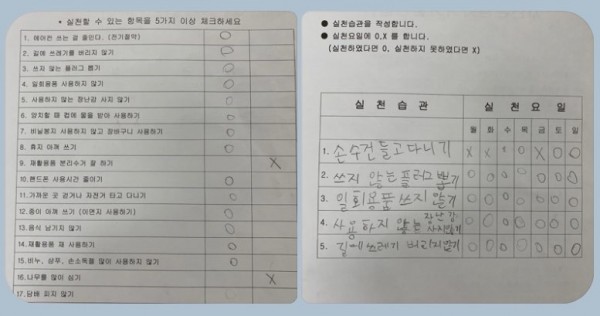 • 실천할 수 있는 항목을 5가지 이상 체크하세요
1. 에어컨 쓰는 걸 줄인다. (전기절약) O
2. 길에 쓰레기를 버리지 않기 O
3. 쓰지 않는 플러그 뽑기 O
4. 일회용품 사용하지 않기 O
5. 사용하지 않는 장난감 사지 않기 O
6. 양치할 때 컵에 물을 받아 사용하기 O
7. 비닐봉지 사용하지 않고 장바구니 사용하기 O
8. 휴지 아껴 쓰기 O
9. 재활용품 분리수거 잘 하기 X
10. 핸드폰 사용시간 줄이기 O
11. 가까운 곳 걷거나 자전거 타고 다니기 O
12. 종이 아껴 쓰기 (이면지 사용하기) O
13. 음식 남기지 않기 O
14. 재활용품 재 사용하기 O
15. 비누, 샴푸, 손소독을 많이 사용하지 않기 O
16. 나무를 많이 심기 X
17. 담배 피지 않기
● 실천습관을 작성합니다.
● 실천요일에 O,X 를 합니다.
(실천하였다면 O, 실천하지 못하였다면 X)
실 천 습 관 실 천 요 일
월 화 수 목 금 토 일
1. 손수건 들고 다니기 X X O O X O O
2. 쓰지 않는 플러그 뽑기 O O O O O O O
3. 일회용품 쓰지 않기 O O O O O O O
4. 사용하지 않는 장난감 사지않기 O O O O O O O
5. 길에 쓰레기 버리지않기 O O O O O O O